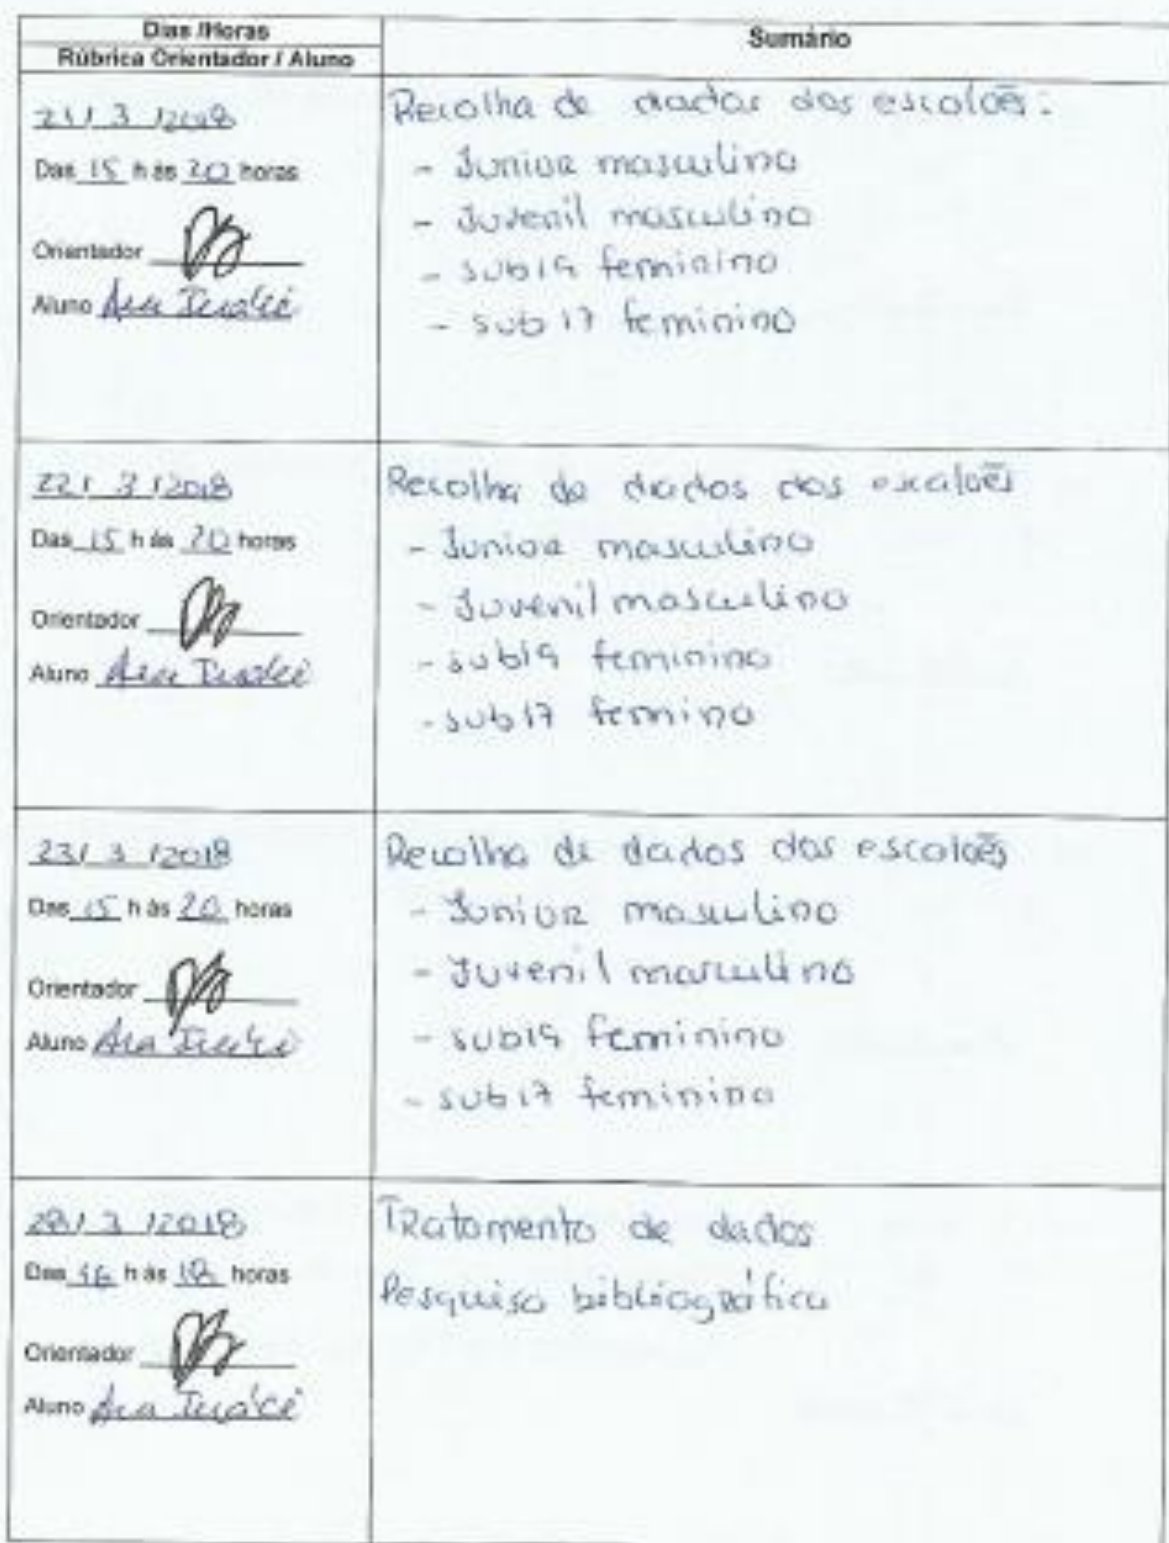 Dias /Horas
Rúbrica Orientador / Aluno
Sumário
21/ 3 /2018
Das 15 h às 20 horas
Orientador
Aluno Ana
Recolha de dados dos escalões:
- Junior masculino
- Juvenil masculino
- sub19 feminino
- sub17 feminino
22/ 3 /2018
Das 15 h às 20 horas
Orientador
Aluno Ana
Recolha de dados dos escalões
- Junior masculino
- Juvenil masculino
- sub19 feminino
- sub17 femino
23/ 3 /2018
Das 15 h às 20 horas
Orientador
Aluno Ana
Recolha de dados dos escalões
- Junior masculino
- Juvenil masculino
- sub19 feminino
- sub17 feminino
/ 3 /2018
Das 16 h às horas
Orientador
Aluno Ana
Tratamento de dados
Pesquisa bibliográfica